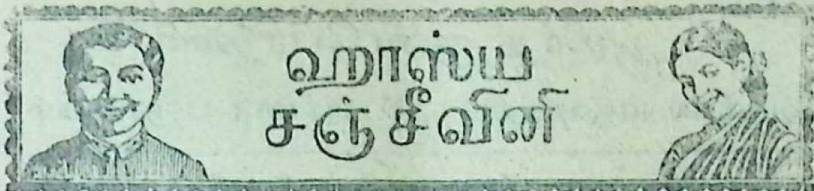 ஹாஸ்ய
சஞ்சீவினி